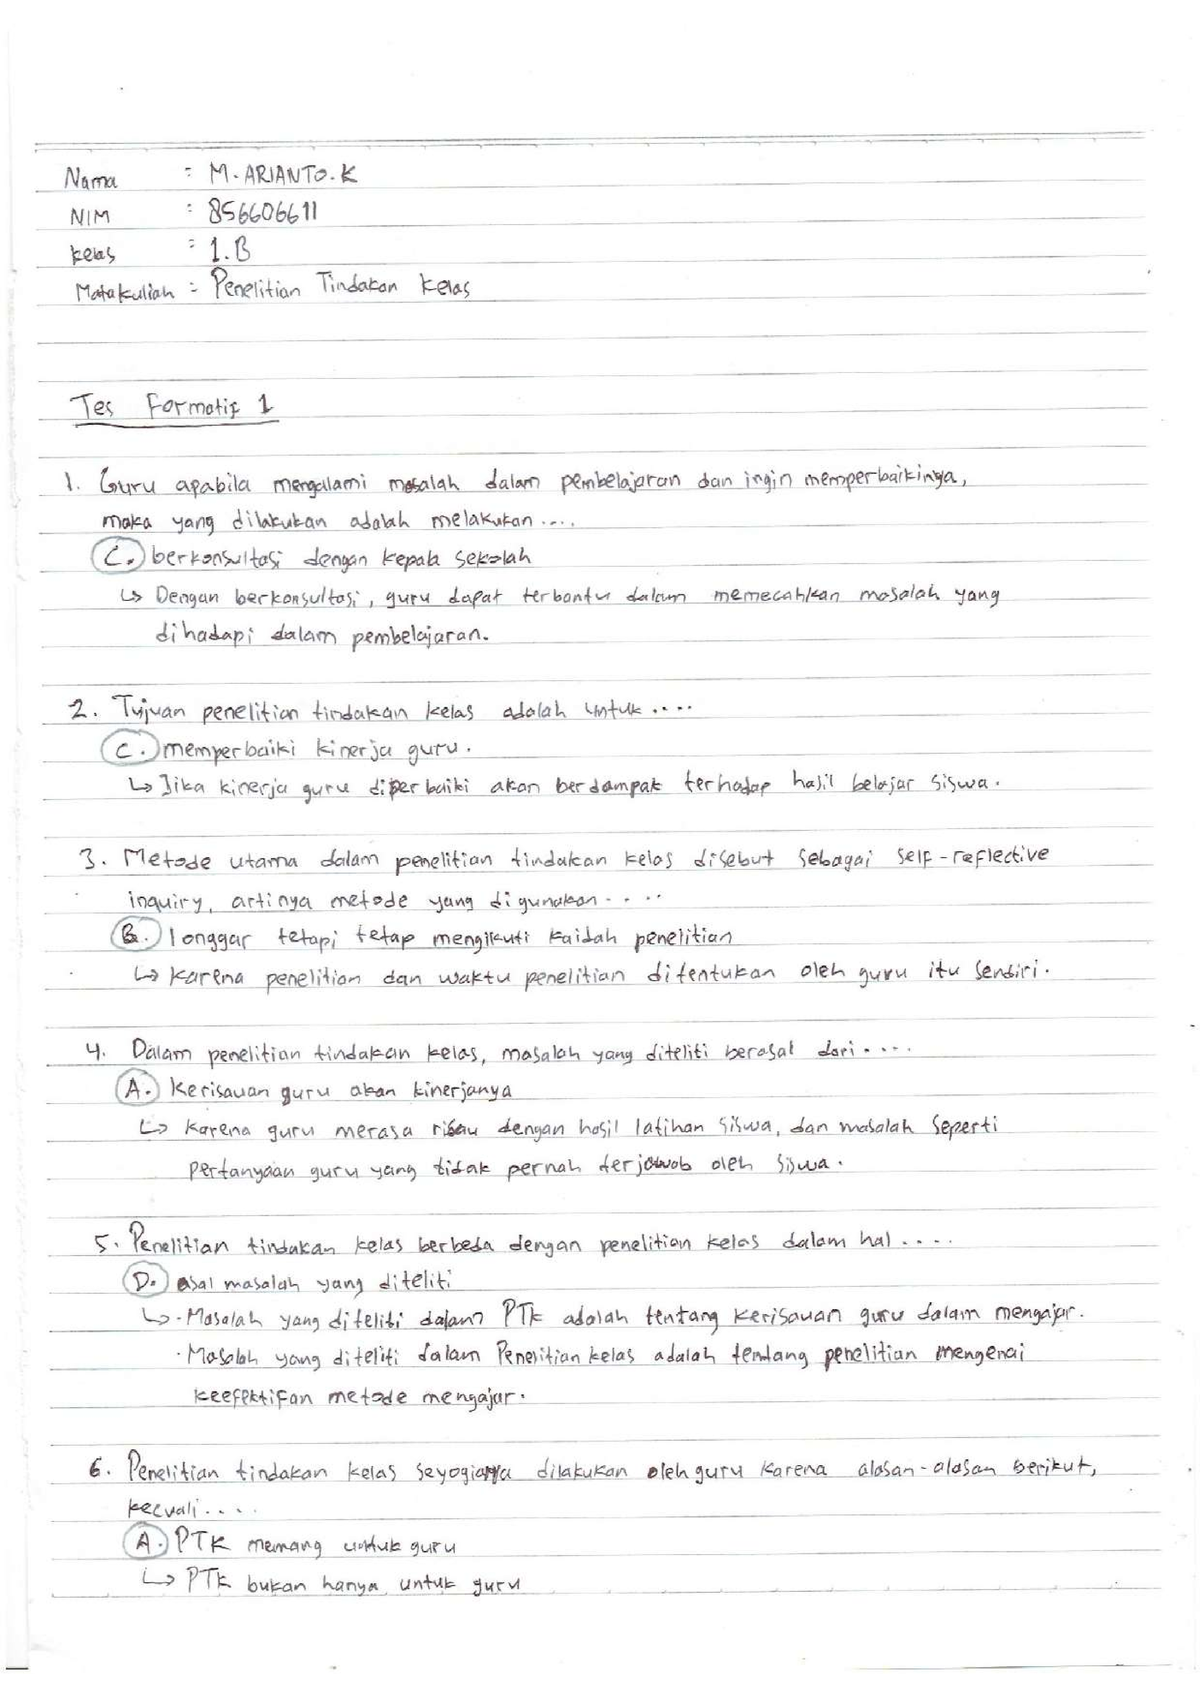 Nama : M. ARIANTO. K
NIM : 856606611
kelas : 1. B
Matakuliah : Penelitian Tindakan Kelas
Tes Formatif 1
1. Guru apabila mengalami masalah dalam pembelajaran dan ingin memperbaikinya,
maka yang dilakukan adalah melakukan ....
C. berkonsultasi dengan kepala sekolah
↳ Dengan berkonsultasi, guru dapat terbantu dalam memecahkan masalah yang
dihadapi dalam pembelajaran.
2. Tujuan penelitian tindakan kelas adalah untuk ....
C. memperbaiki kinerja guru.
↳ Jika kinerja guru diperbaiki akan berdampak terhadap hasil belajar siswa.
3. Metode utama dalam penelitian tindakan kelas disebut sebagai self-reflective
inquiry, artinya metode yang digunakan ....
B. longgar tetapi tetap mengikuti kaidah penelitian
↳ Karena penelitian dan waktu penelitian ditentukan oleh guru itu sendiri.
4. Dalam penelitian tindakan kelas, masalah yang diteliti berasal dari ....
A. Kerisauan guru akan kinerjanya
↳ Karena guru merasa risau dengan hasil latihan siswa, dan masalah seperti
pertanyaan guru yang tidak pernah terjawab oleh siswa.
5. Penelitian tindakan kelas berbeda dengan penelitian kelas dalam hal ....
D. asal masalah yang diteliti
↳ · Masalah yang diteliti dalam PTK adalah tentang kerisauan guru dalam mengajar.
· Masalah yang diteliti dalam Penelitian kelas adalah tentang penelitian mengenai
keefektifan metode mengajar.
6. Penelitian tindakan kelas seyogianya dilakukan oleh guru karena alasan-alasan berikut,
kecuali ....
A. PTK memang untuk guru
↳ PTK bukan hanya untuk guru